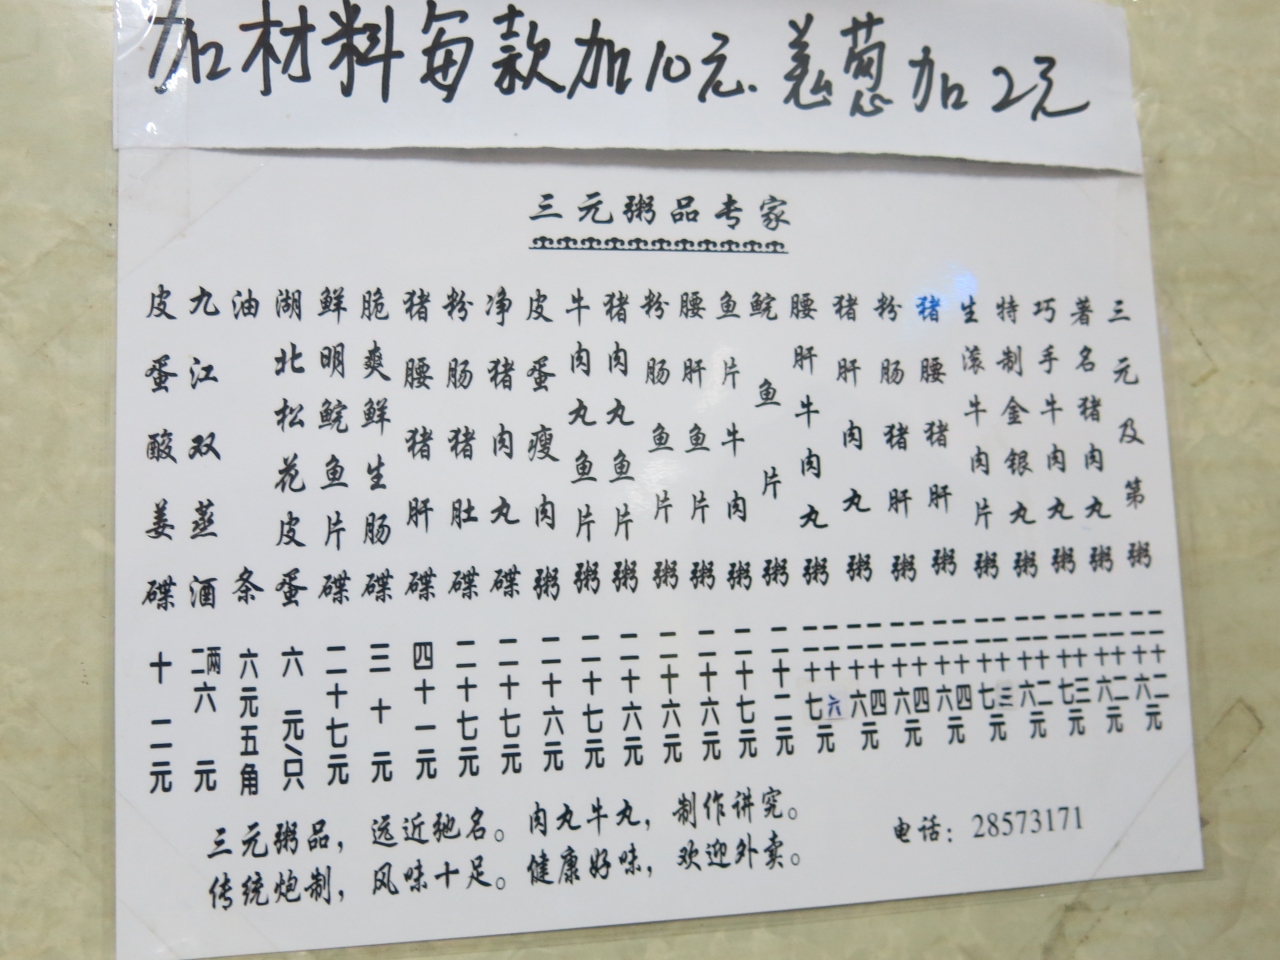 加材料每款加10元. 姜葱加2元
三元粥品专家
三元及第粥 二十二 二十六元
著名猪肉丸粥 二十二 二十六元
巧手牛肉丸粥 二十三 二十七元
特制金银丸粥 二十二 二十六元
生滚牛肉片粥 二十三 二十七元
猪腰猪肝粥 二十四 二十六元
粉肠猪肝粥 二十四 二十六元
猪肝肉丸粥 二十四 二十六元
腰肝牛肉丸粥 二十六 二十七元
鲩鱼片粥 二十二元
鱼片牛肉粥 二十七元
腰肝鱼片粥 二十六元
粉肠鱼片粥 二十六元
猪肉丸鱼片粥 二十六元
牛肉丸鱼片粥 二十七元
皮蛋瘦肉粥 二十六元
净猪肉丸碟 二十七元
粉肠猪肚碟 二十七元
猪腰猪肝碟 四十一元
脆爽鲜生肠碟 三十元
鲜明鲩鱼片碟 二十七元
湖北松花皮蛋 六元/只
油条 六元五角
九江双蒸酒 二两六元
皮蛋酸姜碟 十二元
三元粥品，远近驰名。肉丸牛丸，制作讲究。
传统炮制，风味十足。健康好味，欢迎外卖。
电话：28573171